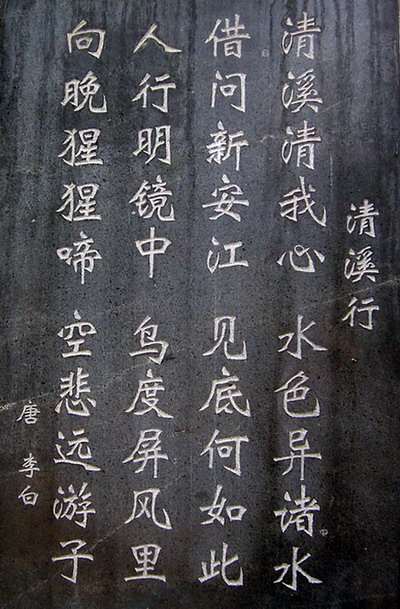 清溪行
清溪清我心 水色异诸水
借问新安江 见底何如此
人行明镜中 鸟度屏风里
向晚猩猩啼 空悲远游子
唐 李白